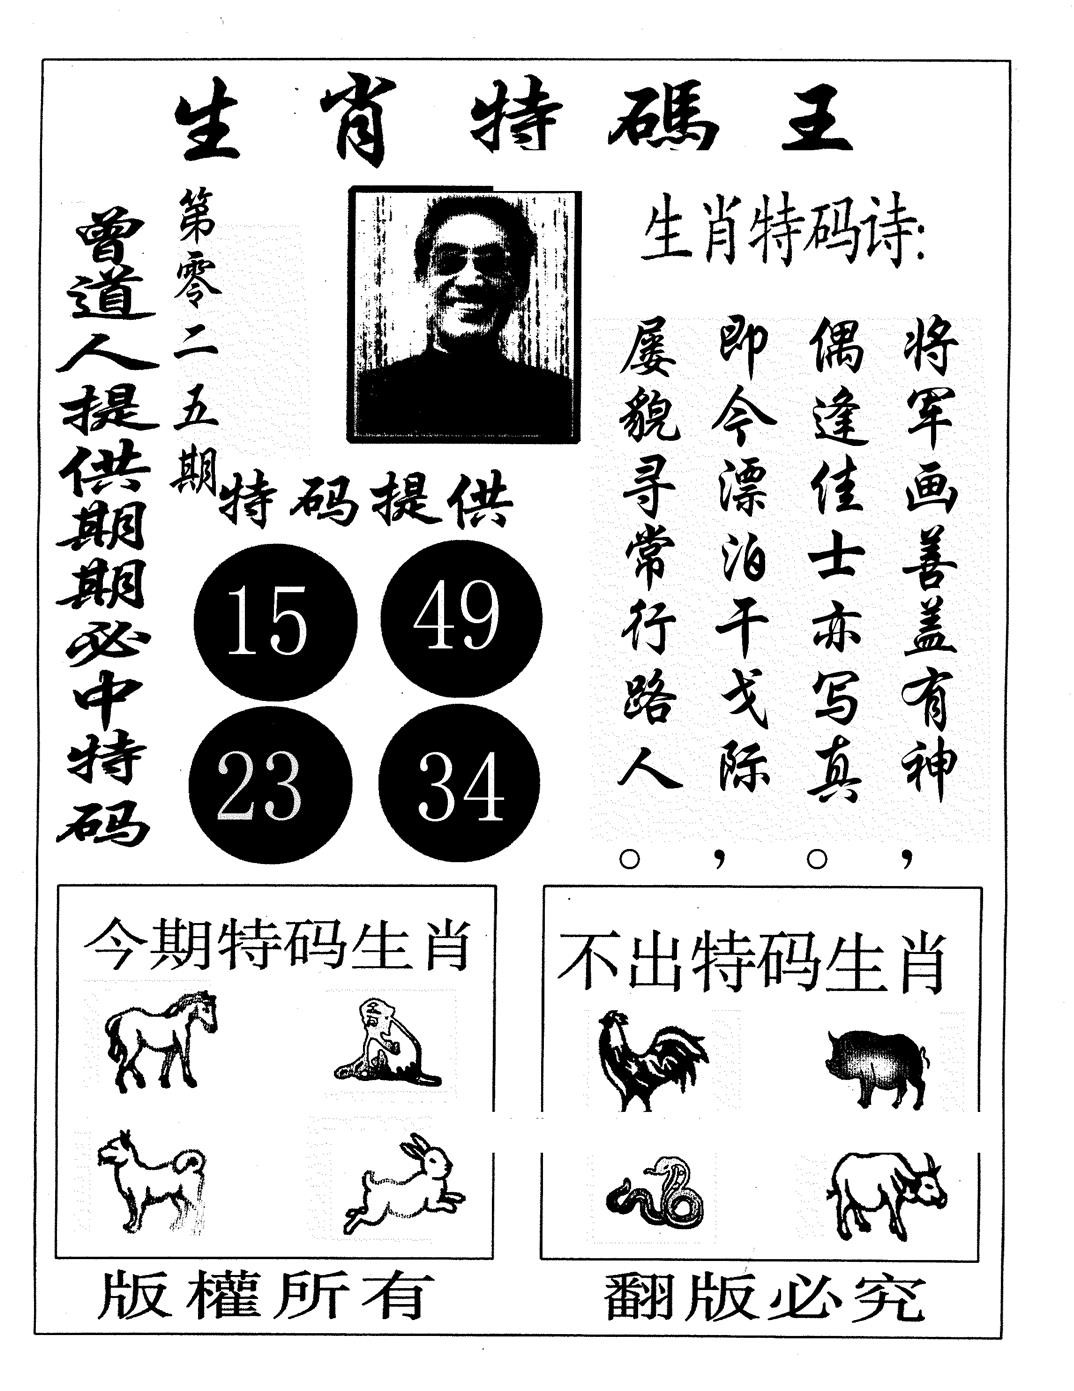 生肖特碼王
曾道人提供期期必中特码
第零二五期
生肖特码诗:
将军画善盖有神，
偶逢佳士亦写真。
即今漂泊干戈际，
屡貌寻常行路人。
特码提供
15 49
23 34
今期特码生肖
不出特码生肖
版權所有
翻版必究